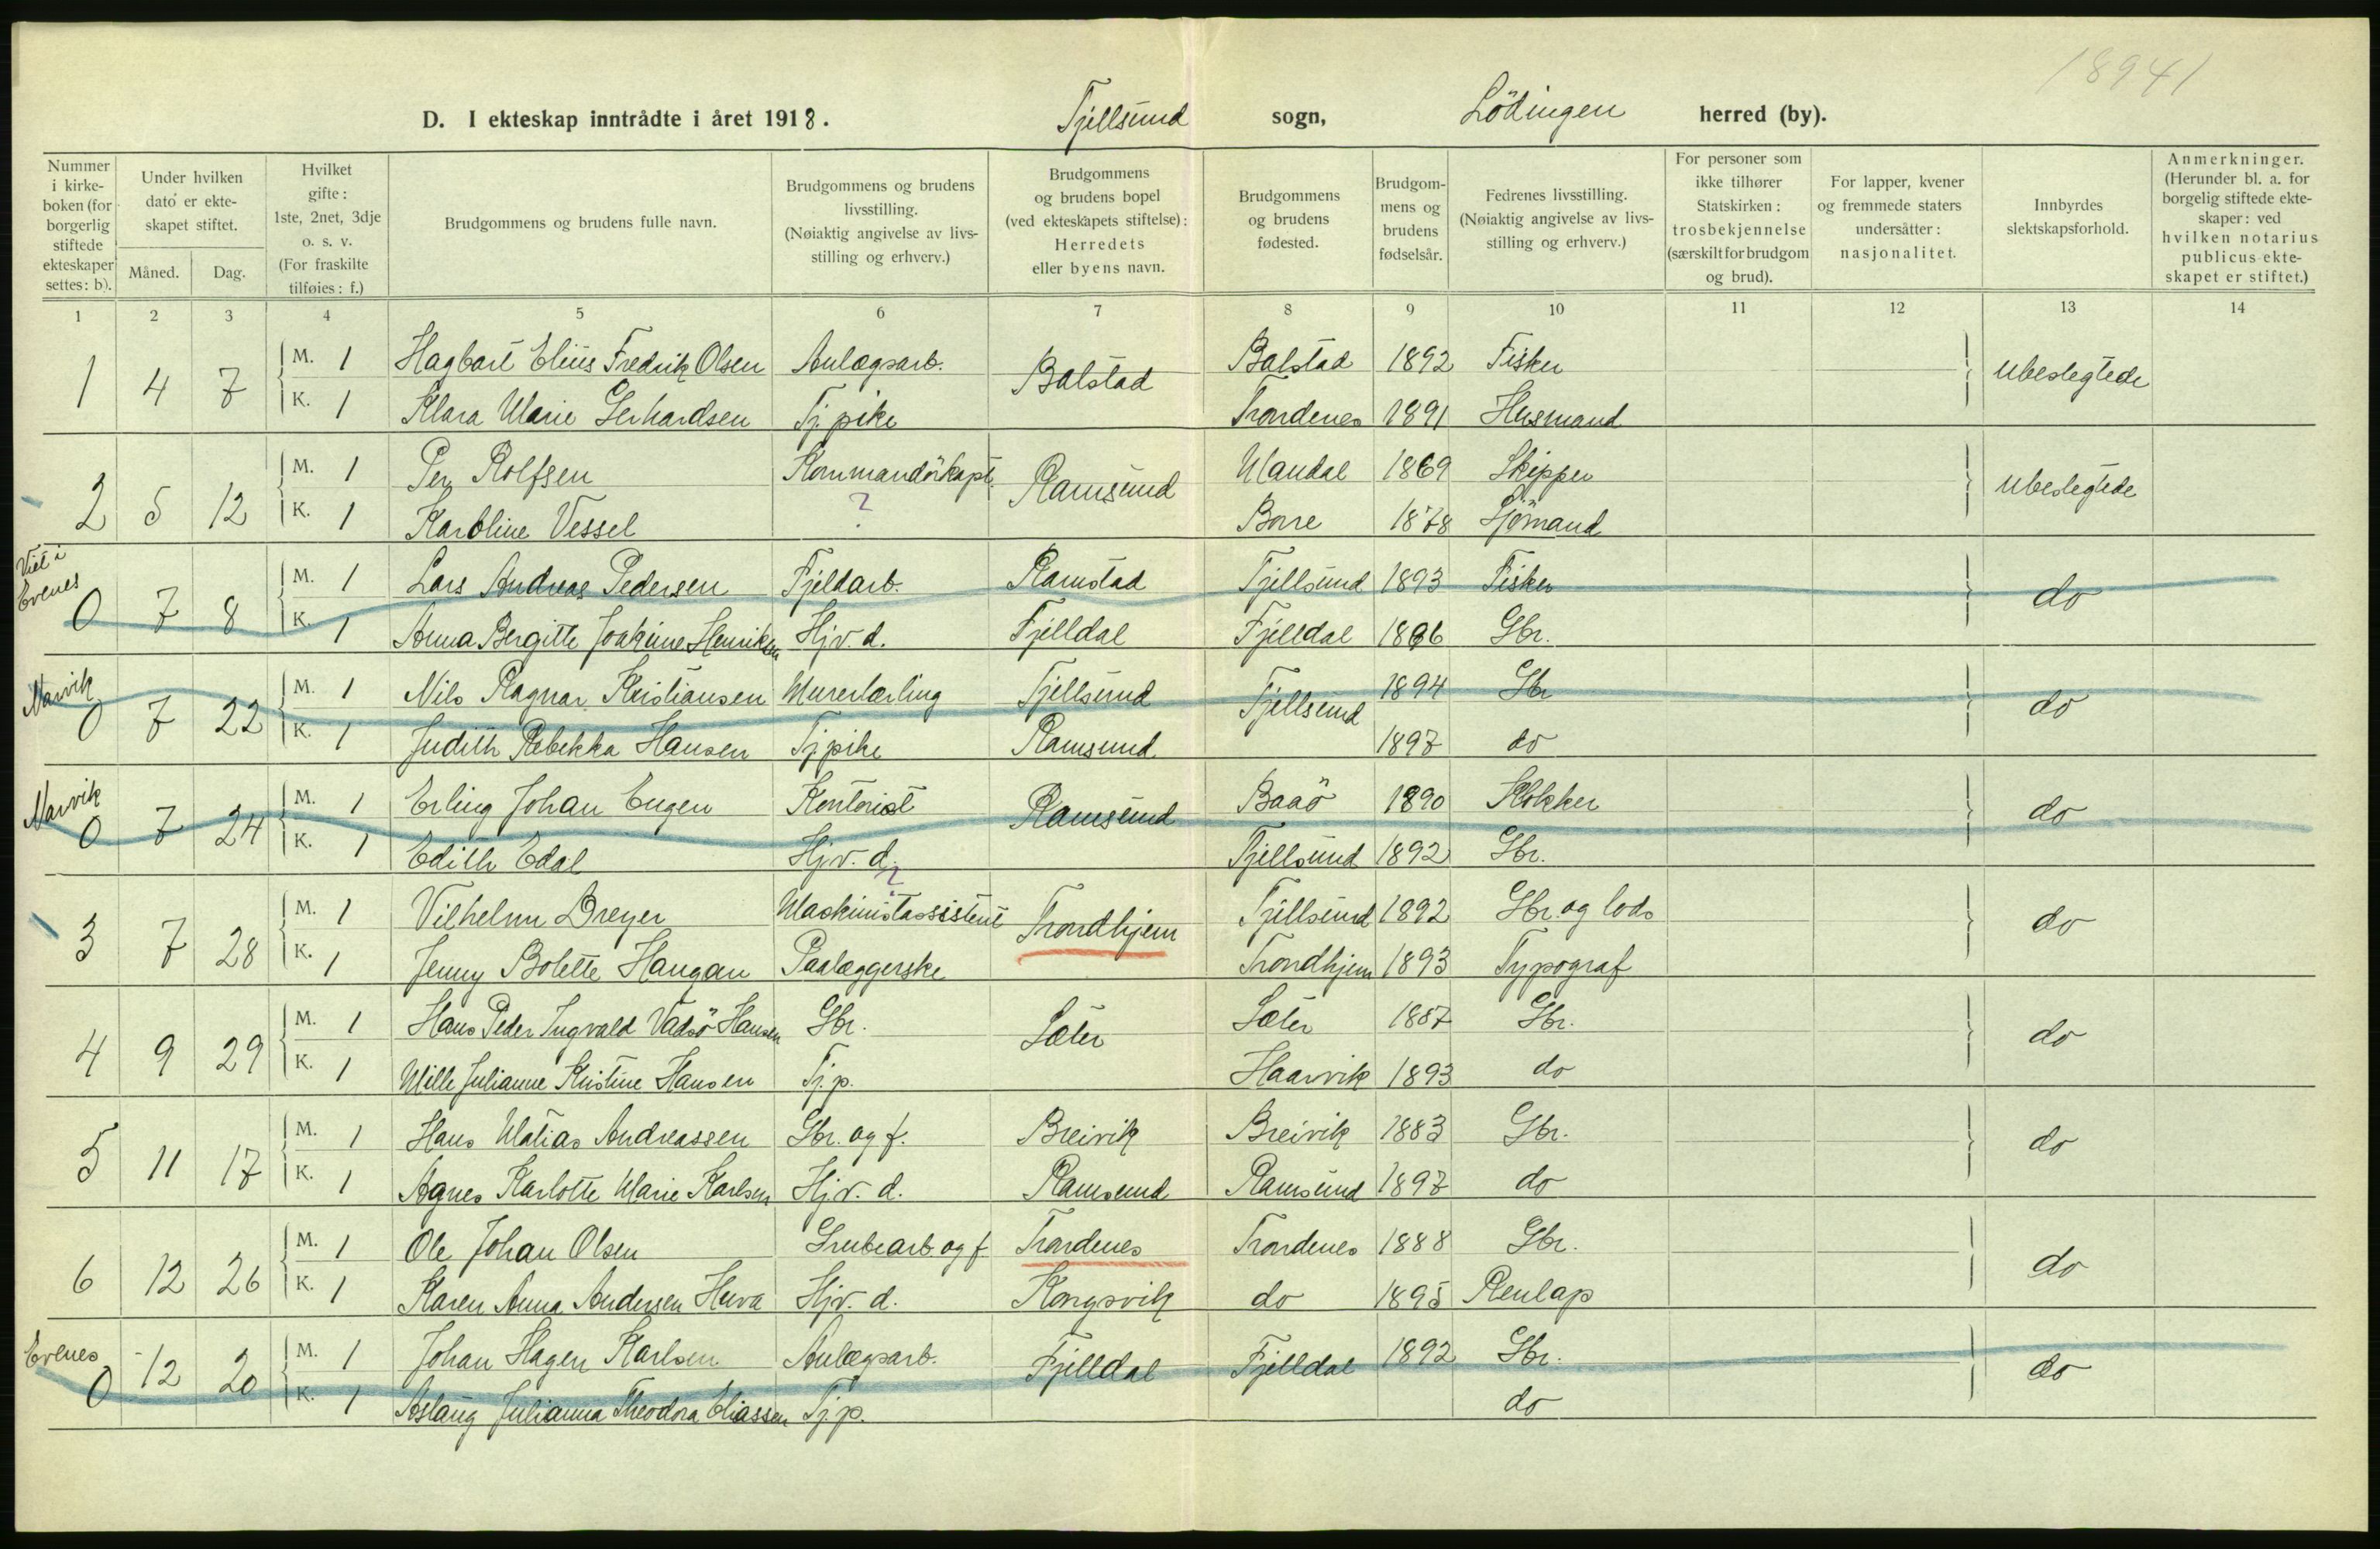 18941
D. I ekteskap inntrådte i året 1918. Tjellsund sogn, Lödingen herred (by).
Nummer i kirkeboken (for borgerlig stiftede ekteskaper settes: b). | Under hvilken dato er ekteskapet stiftet. Måned. Dag. | Hvilket gifte: 1ste, 2net, 3dje o. s. v. (For fraskilte tilføies: f.) | Brudgommens og brudens fulle navn. | Brudgommens og brudens livsstilling. (Nøiaktig angivelse av livsstilling og erhverv.) | Brudgommens og brudens bopel (ved ekteskapets stiftelse): Herredets eller byens navn. | Brudgommens og brudens fødested. | Brudgommens og brudens fødselsår. | Fedrenes livsstilling. (Nøiaktig angivelse av livsstilling og erhverv.) | For personer som ikke tilhører Statskirken: trosbekjennelse (særskilt for brudgom og brud). | For lapper, kvener og fremmede staters undersåtter: nasjonalitet. | Innbyrdes slektskapsforhold. | Anmerkninger. (Herunder bl. a. for borgelig stiftede ekteskaper: ved hvilken notarius publicus ekteskapet er stiftet.)
1 2 3 4 5 6 7 8 9 10 11 12 13 14
1 4 7 M. 1 Hagbart Elius Fredrik Olsen Anlægsarb. Balstad Balstad 1892 Fisker ubeslegtede
K. 1 Klara Marie Gerhardsen Tj. pike Trondenes 1891 Husmand
2 5 12 M. 1 Per Rolfsen Kommandörkapt. Ramsund Mandal 1869 Skipper ubeslegtede
K. 1 Karoline Vessel ? Borre 1878 Sjömand
Viet i Evenes
0 7 8 M. 1 Lars Andreas Pedersen Fjeldarb. Ramstad Tjellsund 1893 Fisker do
K. 1 Anna Bergitte Joakime Henriksen Hjv. d. Fjelldal Fjelldal 1896 Gbr.
Narvik
0 7 22 M. 1 Nils Ragnar Kristiansen Murerlærling Tjellsund Tjellsund 1894 Gbr do
K. 1 Judith Rebekka Hansen Tjpike Ramsund 1897 do
Narvik
0 7 24 M. 1 Erling Johan Eugen Kontorist Ramsund Baaö 1890 Klokker do
K. 1 Edith Edal Hjv. d. ? Tjellsund 1892 Gbr.
3 7 28 M. 1 Vilhelm Dreyer Maskinistassistent Trondhjem Tjellsund 1892 Gbr. og lods do
K. 1 Jenny Bolette Haugan Paalæggerske Trondhjem 1893 Typograf
4 9 29 M. 1 Hans Peder Ingvald Vadsö Hansen Gbr. Sæter Sæter 1887 Gbr. do
K. 1 Mille Julianne Kristine Hansen Tj. p. Haarvik 1893 do
5 11 17 M. 1 Hans Matias Andreassen Gbr. og f. Breivik Breivik 1883 Gbr. do
K. 1 Agnes Karlotte Marie Karlsen Hjv. d. Ramsund Ramsund 1897 do
6 12 26 M. 1 Ole Johan Olsen Grubearb. og f. Trondenes Trondenes 1888 Gbr. do
K. 1 Karen Anna Andersen Huva Hjv. d. Kongsvik do 1895 Renlap
Evenes
0 12 20 M. 1 Johan Hagen Karlsen Anlægsarb. Fjelldal Fjelldal 1892 Gbr. do
K. 1 Aslaug Julianna Theodora Eliassen Tj. p. do